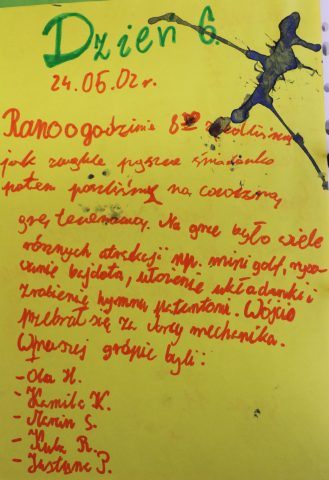 Dzień 6.
24.05.02r.
Rano o godzinie 8⁰⁰ zjedliśmy
jak zwykle pyszne śniadanko
potem poszliśmy na coroczną
grę terenową. Na grze było wiele
różnych atrakcji np. mini golf, ryso
wanie bajdota, ułożenie układanki i
zrobienie hymnu patentami. Wojcio
przebrał się za mechanika.
W naszej grópie byli:
- Ola H.
- Kamila K.
- Marcin S.
- Kuba R.
- Justyna P.